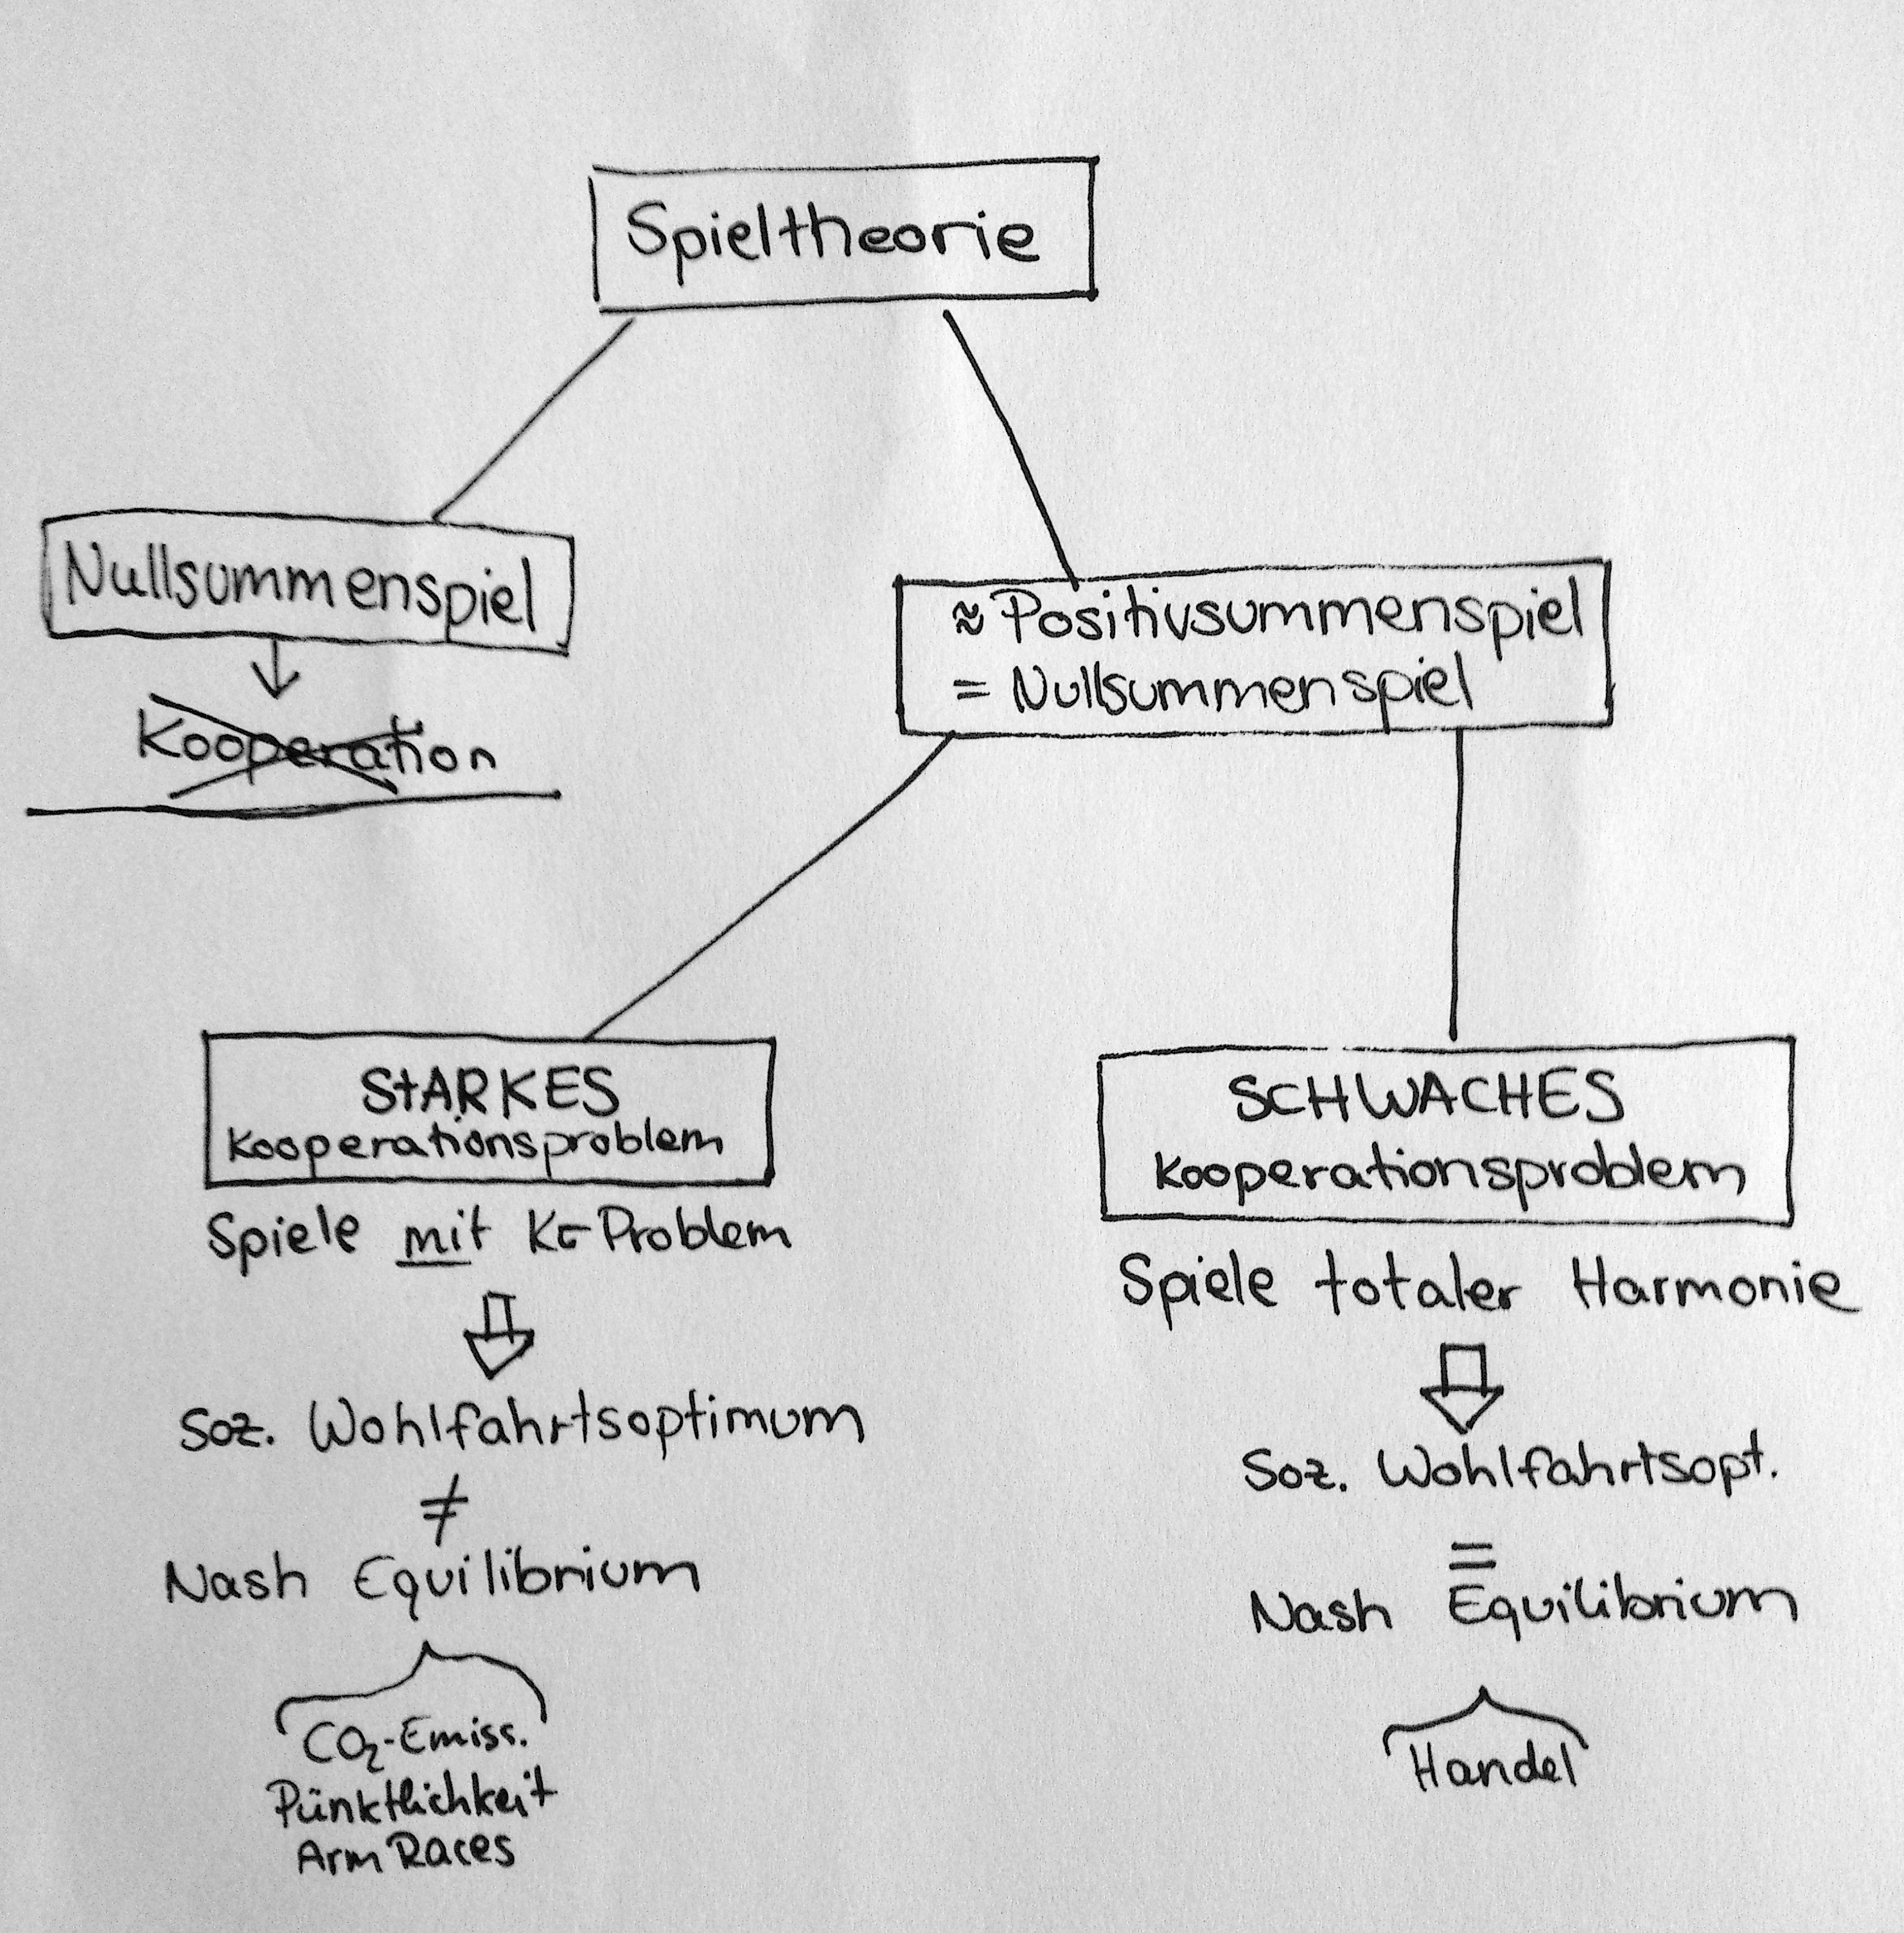 Spieltheorie
Nullsummenspiel
Kooperation
≈ Positivsummenspiel
= Nullsummenspiel
STARKES
Kooperationsproblem
Spiele mit K-Problem
Soz. Wohlfahrtsoptimum
≠
Nash Equilibrium
CO₂-Emiss.
Pünktlichkeit
Arm Races
SCHWACHES
Kooperationsproblem
Spiele totaler Harmonie
Soz. Wohlfahrtsopt.
=
Nash Equilibrium
Handel